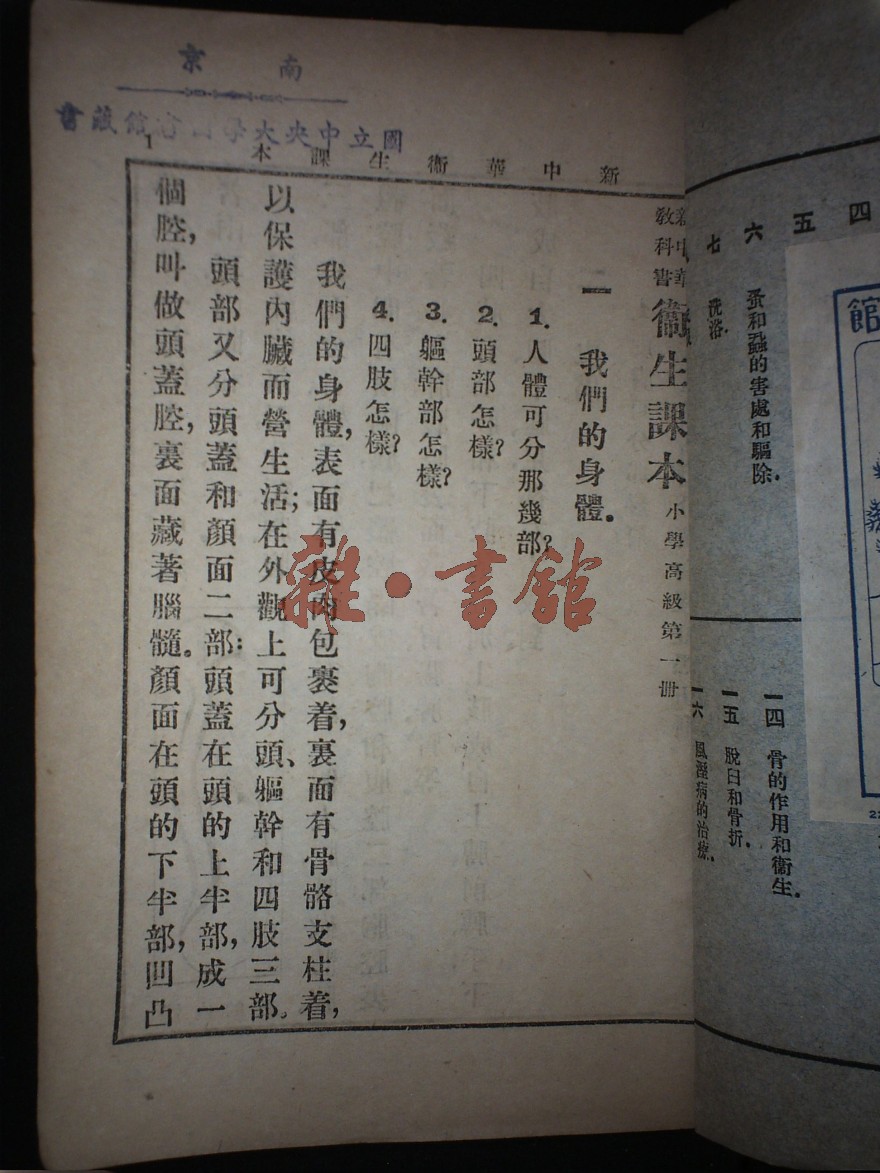 南京
國立中央大學圖書館藏書
新中華衞生課本
1
新中華
教科書
衞生課本
小學高級第一册
一 我們的身體.
1. 人體可分那幾部?
2. 頭部怎樣?
3. 軀幹部怎樣?
4. 四肢怎樣?
我們的身體,表面有皮肉包裹着,裏面有骨骼支柱着,
以保護內臟而營生活;在外觀上可分頭、軀幹和四肢三部。
頭部又分頭蓋和顏面二部:頭蓋在頭的上半部,成一
個腔,叫做頭蓋腔,裏面藏著腦髓。顏面在頭的下半部,凹凸
四
五
六 蚤和蝨的害處和驅除.
七 洗浴.
一四 骨的作用和衞生.
一五 脫臼和骨折.
一六 風溼病的治療.
館
雜·書館